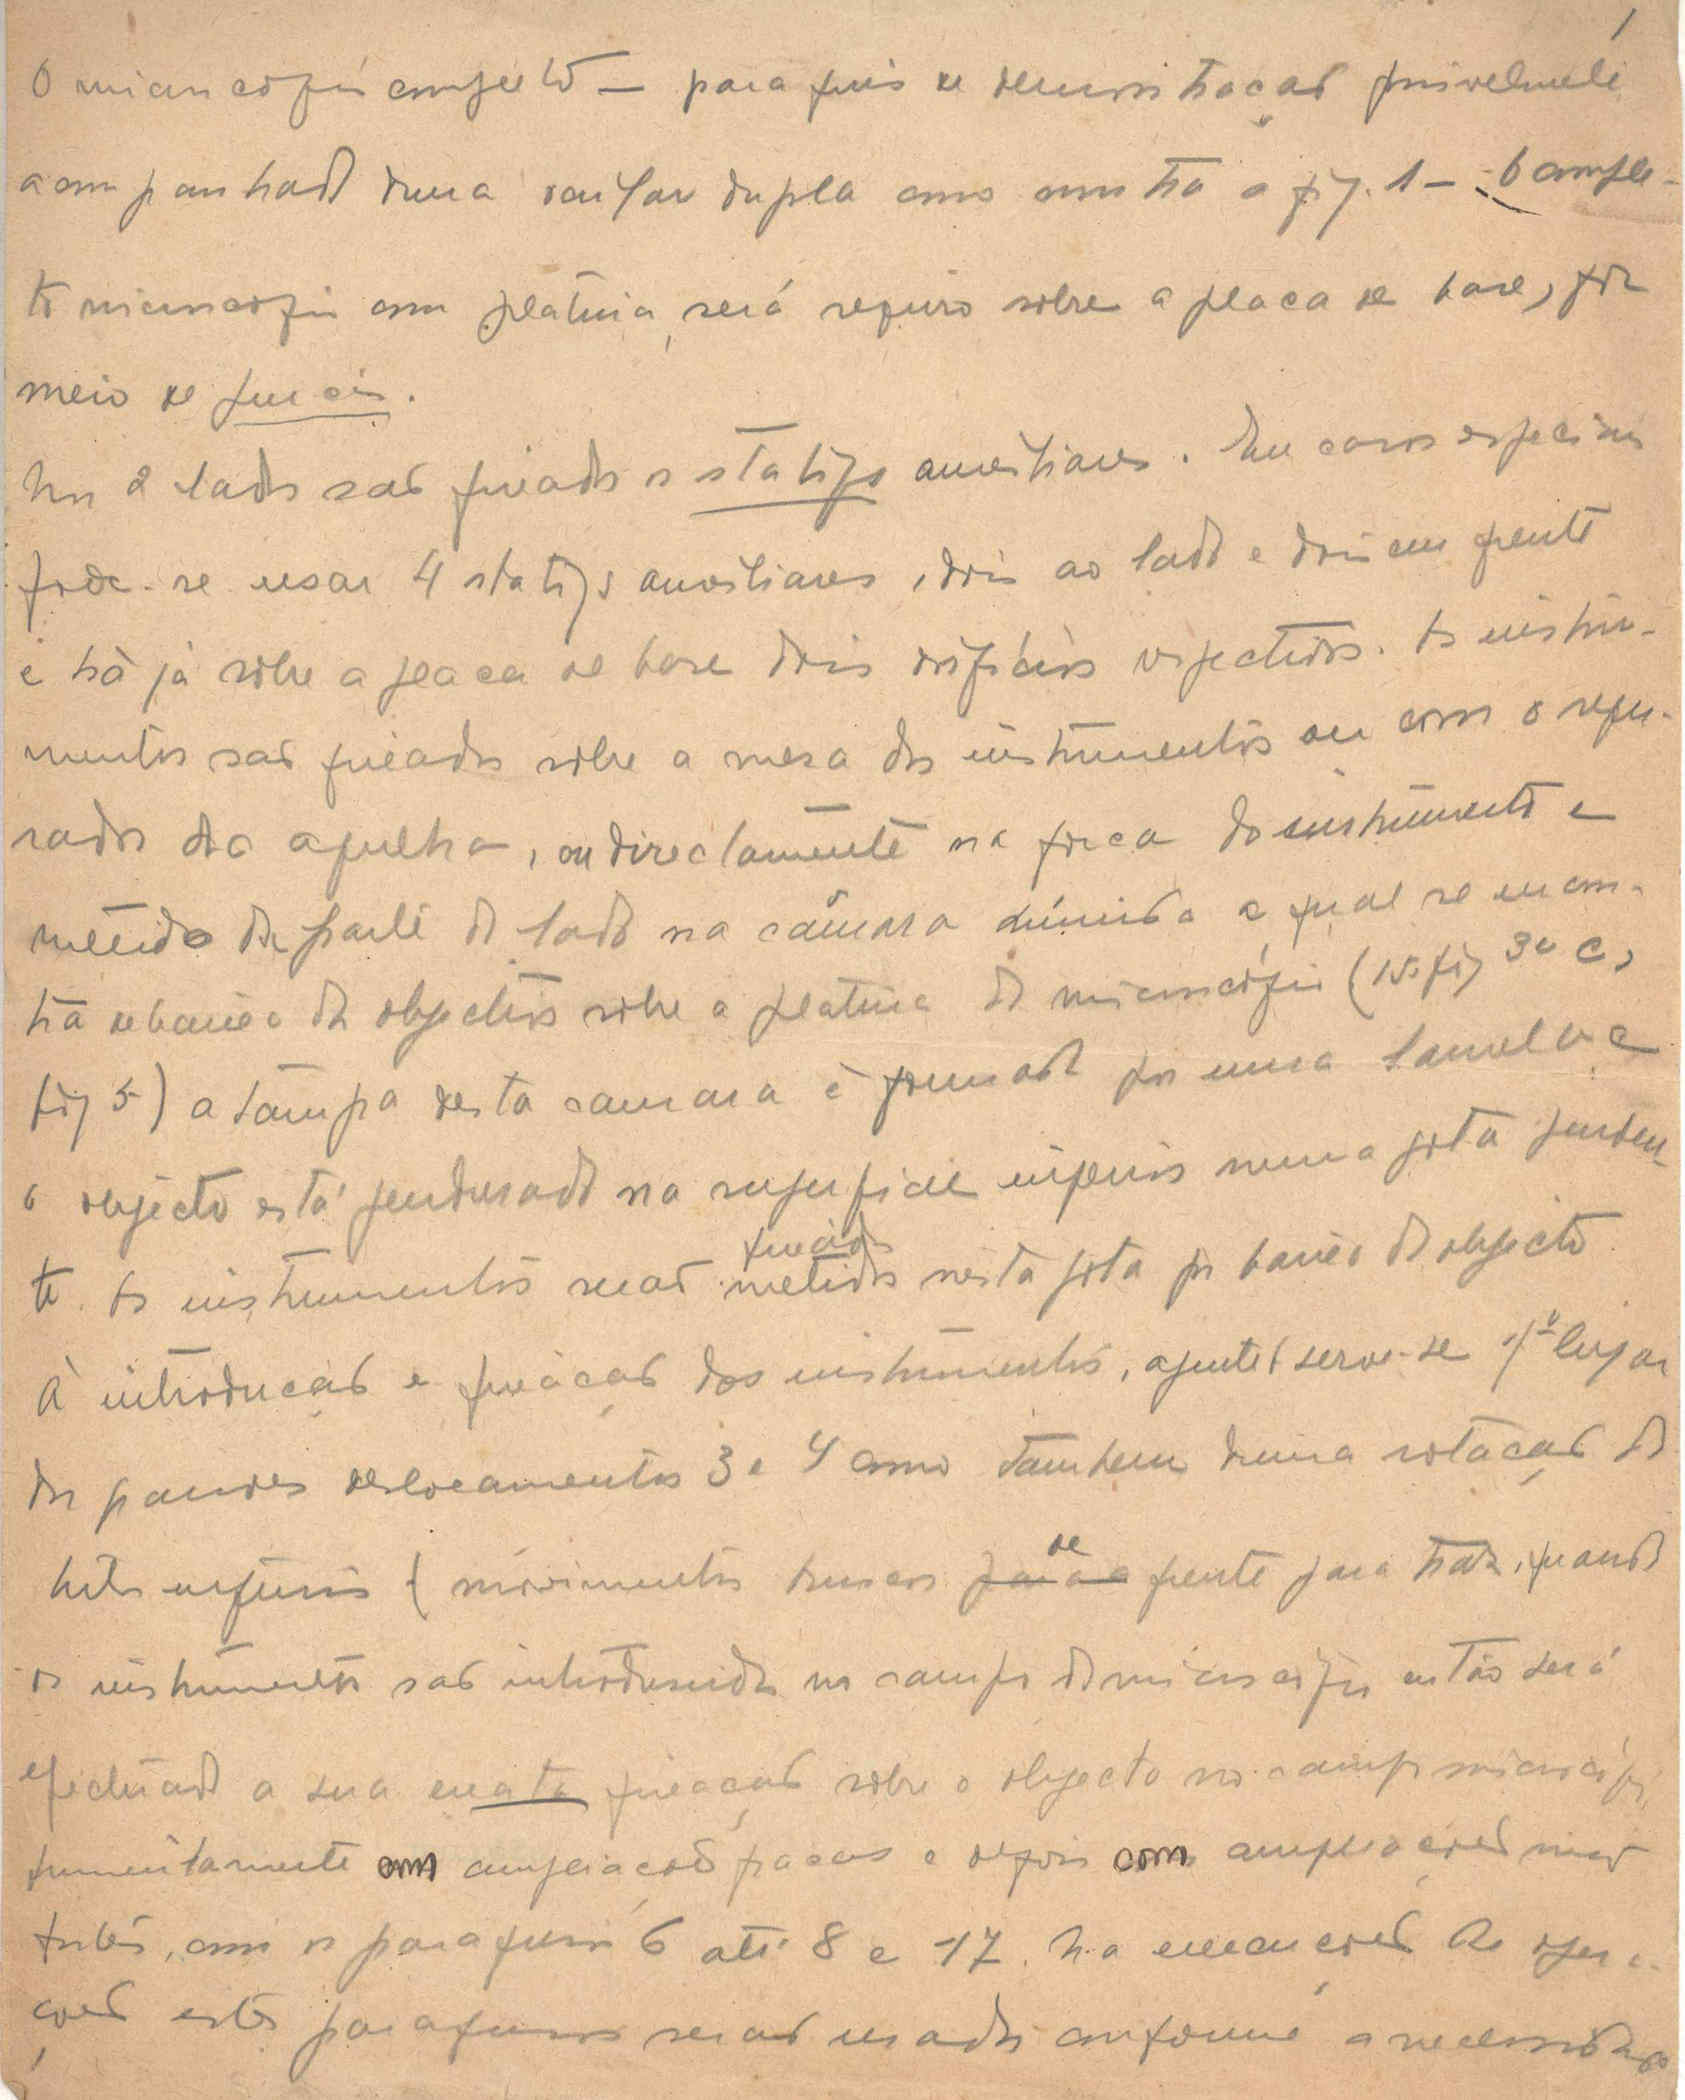 1
O microscópio completo — para fins de demonstração possivelmente
acompanhado duma ocular dupla como mostra a fig. 1 — O comple-
to microscópio com platina, será seguro sobre a placa de base, por
meio de
Nos 2 lados são fixados os stativs auxiliares. Em casos especiais
pode-se usar 4 stativs auxiliares, dois ao lado e dois em frente
e há já sobre a placa de base dois orifícios respectivos. Os instru-
mentos são fixados sobre a mesa dos instrumentos ou com o segu-
rador da agulha, ou directamente na do instrumento e
metido da parte do lado na câmara húmida a qual se encon-
tra debaixo da objectiva sobre a platina do microscópio (15 fig 3 e
fig 5) a tampa desta camara é formada por uma lamela e
o objecto está pendurado na superficie inferior numa gota penden-
te. Os instrumentos serão metidos fixados nesta gota por baixo do objecto.
À introdução e fixação dos instrumentos, a gente serve-se 1º lugar
dos grandes deslocamentos 3 e 4 como tambem duma rotação do
(movimentos bruscos para a de frente para traz, quando
os instrumentos são introduzidos no campo do microscópio então será
efectuado a sua exata fixação sobre o objecto no campo microscópi
com ampliações fracas e depois com ampliações mais
fortes, com os parafusos 6 até 8 e 17. Na execuções das opera-
ções estes parafusos serão usados conforme a necessidade